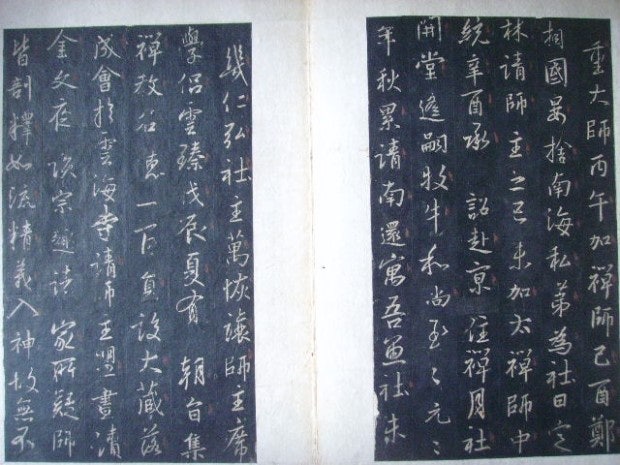 重大師丙午加禪師己酉鄭
相國晏捨南海私第為社曰定
林請師主之己未加大禪師中
統辛酉承 詔赴京住禪月社
開堂遙嗣牧牛和尚至〻元〻
年秋累請南還寓吾魚社未
幾仁弘社主萬恢讓師主席
學侶雲臻戊辰夏有 朝旨集
禪教名德一百員設大藏落
成會於雲海寺請師主盟晝讀
金文夜談宗趣諸家所疑師
皆剖釋如流精義入神故無不